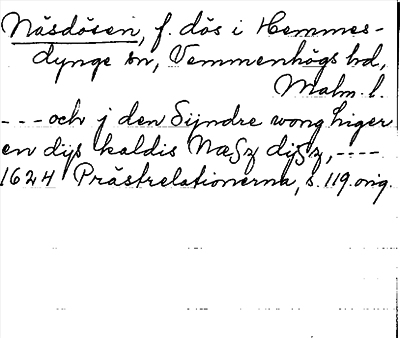 Näsdösen, f. dös i Hemmes-
dynge sn, Vemmenhögs hd,
Malm. l.
--- och j den Sijndre wong liger
en dijs kaldis Næsz dijsz, ----
1624 Prästrelationerna, s. 119 orig.